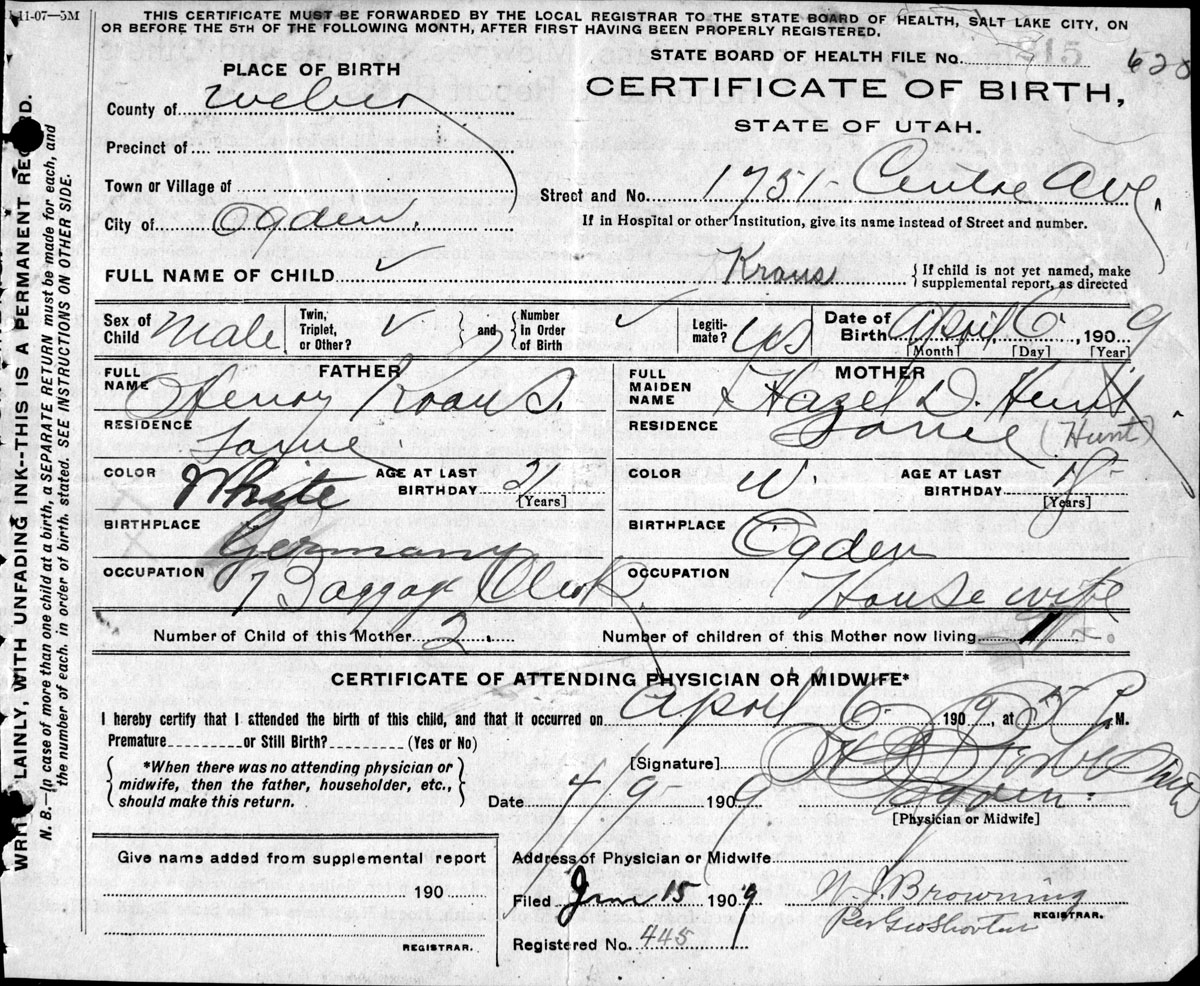 11-07—5M
THIS CERTIFICATE MUST BE FORWARDED BY THE LOCAL REGISTRAR TO THE STATE BOARD OF HEALTH, SALT LAKE CITY, ON
OR BEFORE THE 5TH OF THE FOLLOWING MONTH, AFTER FIRST HAVING BEEN PROPERLY REGISTERED.
STATE BOARD OF HEALTH FILE No. 628
CERTIFICATE OF BIRTH,
STATE OF UTAH.
PLACE OF BIRTH
County of Weber
Precinct of
Town or Village of
City of Ogden.
Street and No. 1751 Centre Ave
If in Hospital or other Institution, give its name instead of Street and number.
FULL NAME OF CHILD Kraus
If child is not yet named, make
supplemental report, as directed
Sex of Child Male
Twin, Triplet, or Other?
and Number In Order of Birth
Legitimate? Yes
Date of Birth April 6, 1909
[Month] [Day] [Year]
FATHER
FULL NAME Henry Kraus.
RESIDENCE Same
COLOR White AGE AT LAST BIRTHDAY 21 [Years]
BIRTHPLACE Germany
OCCUPATION Baggage Clerk
MOTHER
FULL MAIDEN NAME Hazel D. Hunt
RESIDENCE Same (Hunt)
COLOR W. AGE AT LAST BIRTHDAY [Years]
BIRTHPLACE Ogden
OCCUPATION House wife
Number of Child of this Mother 2. Number of children of this Mother now living
CERTIFICATE OF ATTENDING PHYSICIAN OR MIDWIFE*
I hereby certify that I attended the birth of this child, and that it occurred on April 6 1909, at 5 P.M.
Premature or Still Birth? (Yes or No)
*When there was no attending physician or
midwife, then the father, householder, etc.,
should make this return.
[Signature]
Date 4/9- 1909 Ogden
[Physician or Midwife]
Give name added from supplemental report
190
REGISTRAR.
Address of Physician or Midwife
Filed June 15 1909 W. J. Browning
REGISTRAR.
Per Geo Shorten
Registered No. 445
LAINLY, WITH UNFADING INK--THIS IS A PERMANENT RECORD.
N. B.—In case of more than one child at a birth, a SEPARATE RETURN must be made for each, and
the number of each, in order of birth, stated. SEE INSTRUCTIONS ON OTHER SIDE.